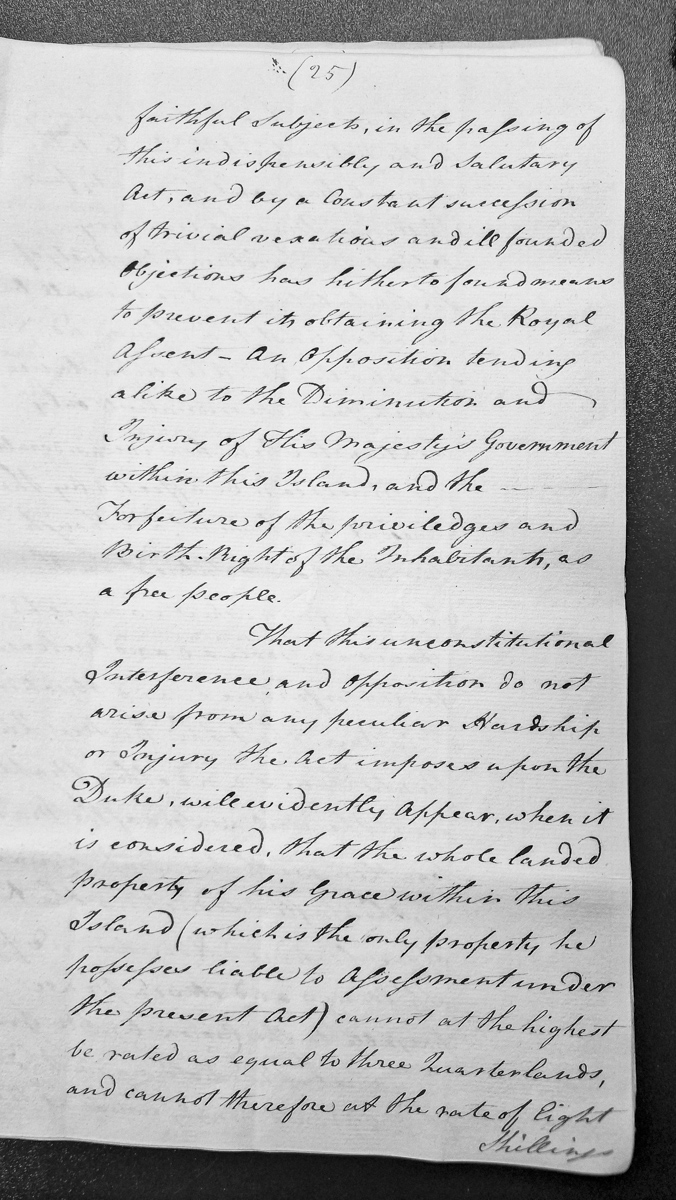 (25)
faithful Subjects, in the passing of
this indispensibly and Salutary
Act, and by a Constant succession
of trivial vexatious and ill founded
Objections has hitherto found means
to prevent its obtaining the Royal
Assent – An Opposition tending
alike to the Diminution and
Injury of His Majesty's Government
within this Island, and the
Forfeiture of the priviledges and
Birth-Right of the Inhabitants, as
a free people.
That this unconstitutional
Interference and Opposition do not
arise from any peculiar Hardship
or Injury the Act imposes upon the
Duke, will evidently Appear, when it
is considered, that the whole landed
property of his Grace within this
Island (which is the only property he
possesses liable to Assessment under
the present Act) cannot at the highest
be rated as equal to three Quarterlands,
and cannot therefore at the rate of Eight
Shillings